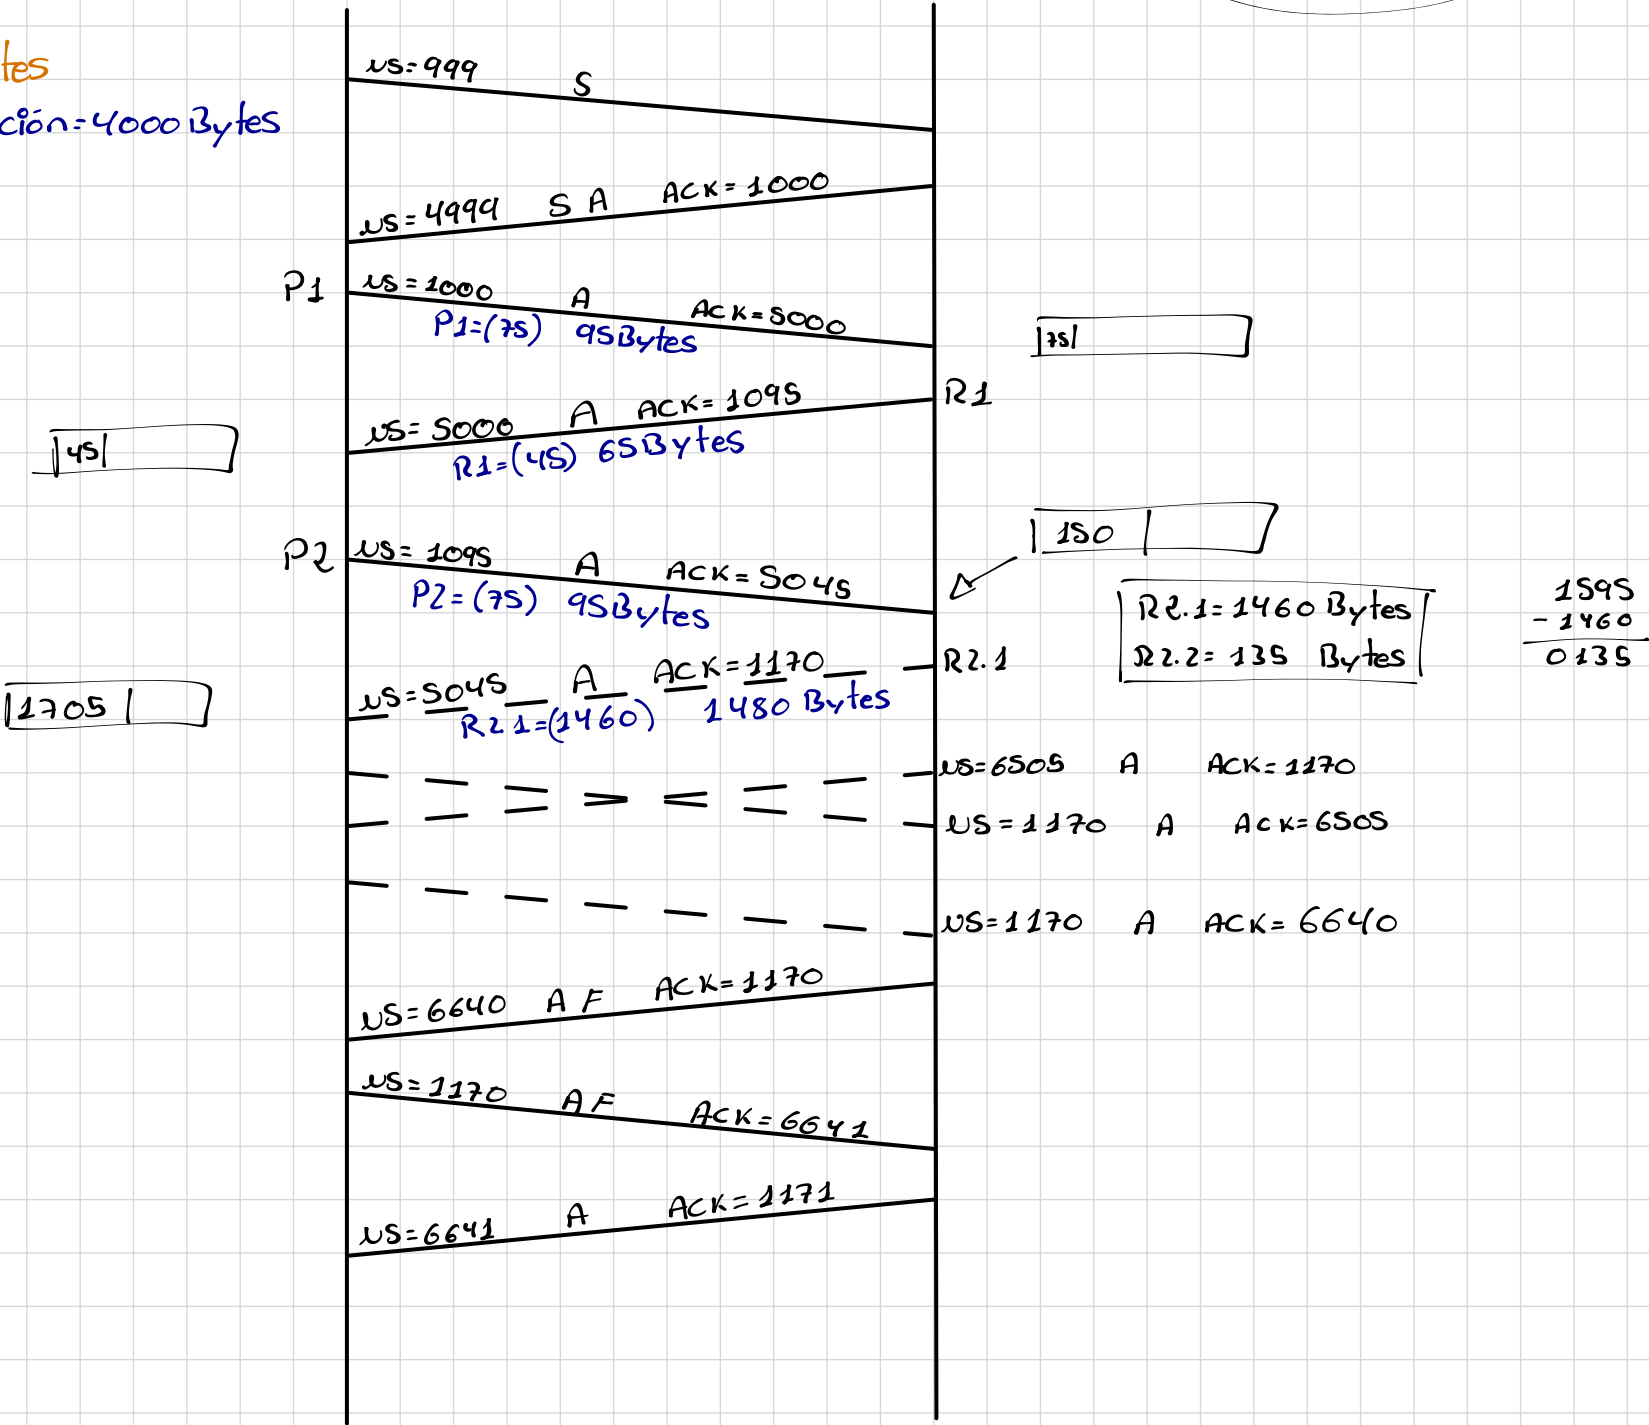 tes
ción=4000 Bytes
NS=999 S
NS=4999 S A ACK=1000
P1 NS=1000 A ACK=5000
P1=(75) 95Bytes
75
R1
NS=5000 A ACK=1095
R1=(45) 65Bytes
45
150
P2 NS=1095 A ACK=5045
P2=(75) 95Bytes
R2.1=1460 Bytes
R2.2=135 Bytes
1595
-1460
0135
R2.1
NS=5045 A ACK=1170
R2.1=(1460) 1480 Bytes
1705
NS=6505 A ACK=1170
NS=1170 A ACK=6505
NS=1170 A ACK=6640
NS=6640 A F ACK=1170
NS=1170 A F ACK=6641
NS=6641 A ACK=1171